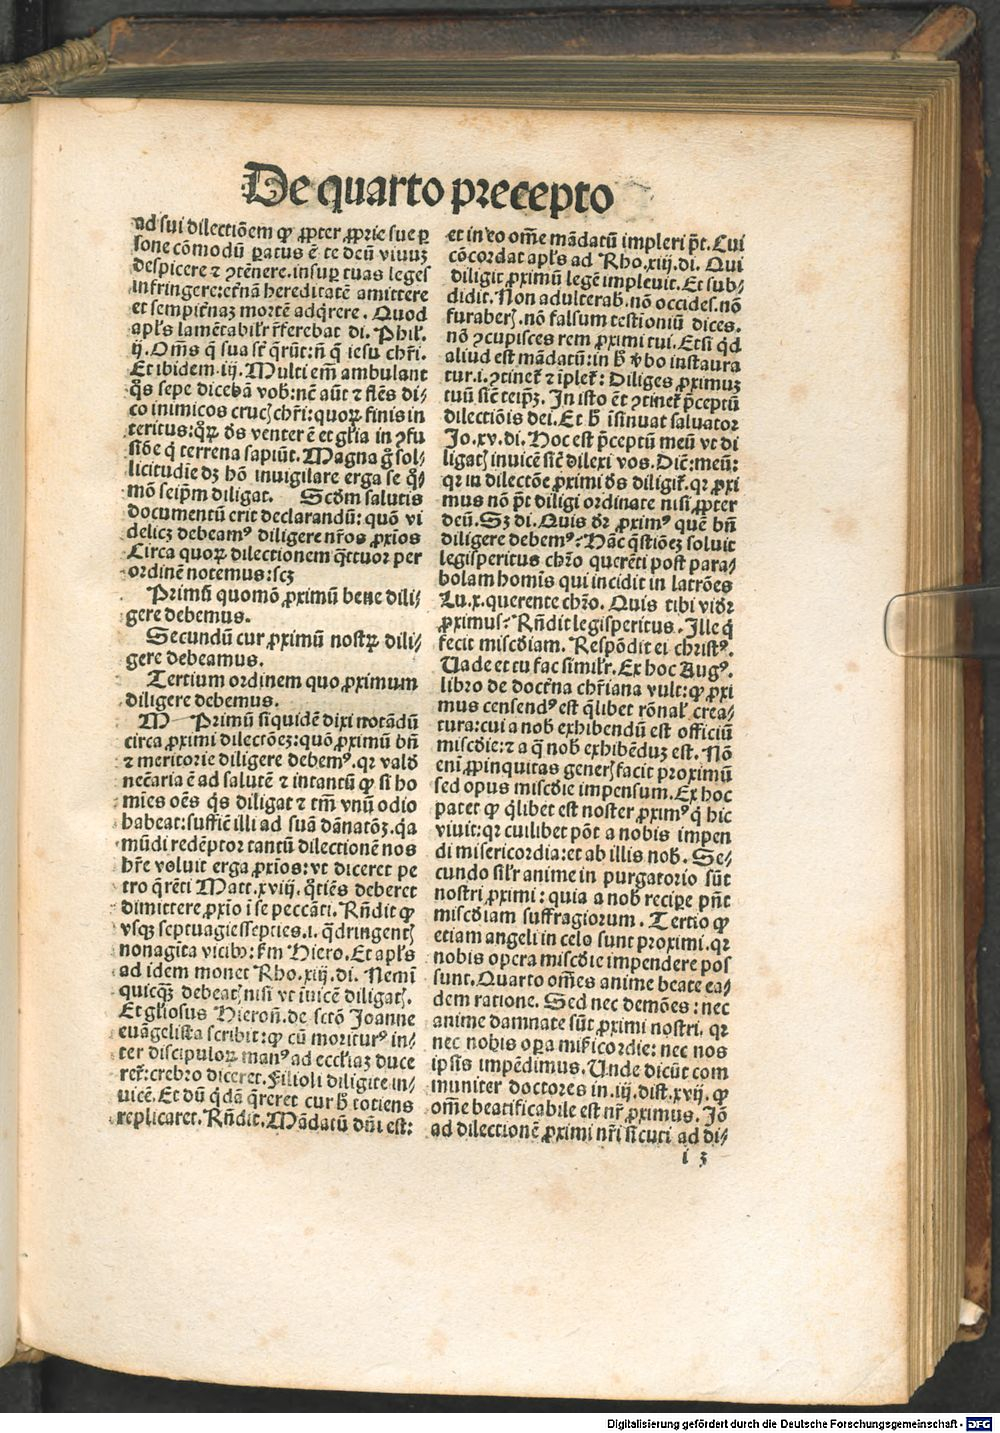 De quarto precepto
ad sui dilectiõem ꝙ ꝓpter ꝓprie sue ꝑ
sone cõmodũ ꝑatus ẽ te deũ viuuꝫ
despicere ⁊ ꝯtẽnere. insuꝑ tuas leges
infringere: etr̃nã hereditatẽ amittere
et sempit̃naꝫ mortẽ adq̃rere. Quod
apl̃s lamẽtabilr̃ r̃ferebat di. Phil̃.
ij. Om̃s q̃ sua sr̃t q̃rũt: ñ q̃ iesu chr̃i.
Et ibidem .iij. Multi em̃ ambulant
q̃s sepe dicebã vob̃: nẽ aũt ⁊ flẽs di⸗
co inimicos crucꝭ chr̃i: quoꝝ finis in
teritus: q̃ꝝ ds̃ venter ẽ et gl̃ia in ꝯfu
siõe q̃ terrena sapiũt. Magna g̃ sol⸗
licitudĩe dꝫ hõ inuigilare erga se q̃⸗
mõ seip̃m diligat. Scd̃m salutis
documentũ erit declarandũ: quõ vi
delicꝫ debeamꝰ diligere nr̃os ꝓxĩos
Circa quoꝝ dilectionem q̃ttuor per
ordinẽ notemus: scꝫ
Primũ quomõ ꝓximũ bene dili⸗
gere debemus.
Secundũ cur ꝓximũ nostꝝ dili⸗
gere debeamus.
Tertium ordinem quo ꝓximum
diligere debemus.
M Primũ siquidẽ dixi notãdũ
circa ꝓximi dilectõeꝫ: quõ ꝓximũ bñ
⁊ meritorie diligere debemꝰ. qr vald̃
nec̃aria ẽ ad salutẽ ⁊ intantũ ꝙ si ho
mĩes oẽs q̃s diligat ⁊ tm̃ vnũ odio
habeat: suffic̃ illi ad suã dãnatõꝫ. q̃a
mũdi redẽptor tantũ dilectionẽ nos
hr̃e voluit erga ꝓxĩos: vt diceret pe
tro q̃rẽti Matt. xviij. q̃tiẽs deberet
dimittere ꝓxĩo ĩ se peccãti. Rñdit ꝙ
vsqꝫ septuagiessepties .i. q̃dringentꝭ
nonagĩta vicibꝰ: fm̃ Hiero. Et apl̃s
ad idem monet Rho. xiij. di. Nemĩ
quicq̃ꝫ debeatꝭ nisi vt ĩuicẽ diligatꝭ.
Et gl̃iosus Hieroñ. de sctõ Joanne
euãgelista scribit: ꝙ cũ morituruꝰ in⸗
ter discipuloꝝ manꝰ ad eccl̃iaꝫ duce
ret̃: crebro diceret. Filioli diligite in⸗
uicẽ. Et dũ q̃dã q̃reret cur h̃ totiens
replicaret. Rñdit. Mãdatũ dñi est:
et in eo om̃e mãdatũ impleri p̃t. Cui
cõcordat apl̃s ad Rho. xiij. di. Qui
diligit ꝓximũ legẽ impleuit. Et sub⸗
didit. Non adulterab̃. nõ occides. nõ
furaberꝭ. nõ falsum testioniũ dices.
nõ ꝯcupisces rem ꝓximi tui. Etsi q̃d
aliud est mãdatũ: in h̃ ṽbo instaura
tur .i. ꝯtinet̃ ⁊ ĩplet̃: Diliges ꝓximuꝫ
tuũ sic̃ teip̃ꝫ. In isto ẽt ꝯtinet̃ p̃ceptũ
dilectiõis dei. Et h̃ ĩsinuat saluator
Jo. xv. di. Hoc est p̃ceptũ meũ vt di
ligatꝭ inuicẽ sic̃ dilexi vos. Dic̃: meũ:
qr in dilectõe ꝓximi ds̃ diligit̃. qr ꝓxi
mus nõ p̃t diligi ordinate nisi ꝓpter
deũ. Sꝫ di. Quis dr̃ ꝓximꝰ quẽ bñ
diligere debemꝰ? Hãc q̃stiõeꝫ soluit
legisperitus chr̃o querẽti post para⸗
bolam homĩs qui incidit in latrões
Lu. x. querente chr̃o. Quis tibi vidr̃
ꝓximus? Rñdit legisperitus. Ille q̃
fecit misc̃diam. Respõdit ei christꝰ.
Vade et tu fac simil̃r. Ex hoc Augꝰ.
libro de doctr̃na chr̃iana vult: ꝙ ꝓxi
mus censendꝰ est q̃libet rõnal̃ crea⸗
tura: cui a nob̃ exhibendũ est officiũ
misc̃die: ⁊ a q̃ nob̃ exhibẽduꝫ est. Nõ
eni ꝓpinquitas generꝭ facit proximũ
sed opus misc̃die impensum. Ex hoc
patet ꝙ q̃libet est noster ꝓximꝰ q̃ hic
viuit: qr cuilibet põt a nobis impen
di misericordia: et ab illis nob̃. Se⸗
cundo sil̃r anime in purgatorio sũt
nostri ꝓximi: quia a nob̃ recipe pñt
misc̃diam suffragiorum. Tertio ꝙ
etiam angeli in celo sunt proximi. qr
nobis opera misc̃die impendere pos
sunt. Quarto om̃es anime beate ea⸗
dem ratione. Sed nec demões: nec
anime damnate sũt ꝓximi nostri. qr
nec nobis oꝑa mis̃icordie: nec nos
ipsis impẽdimus. Unde dicũt com
muniter doctores in .iij. dist. xvij. ꝙ
om̃e beatificabile est nr̃ ꝓximus. Jõ
ad dilectionẽ ꝓximi nr̃i sicuti ad di⸗
i 3
Digitalisierung gefördert durch die Deutsche Forschungsgemeinschaft - DFG